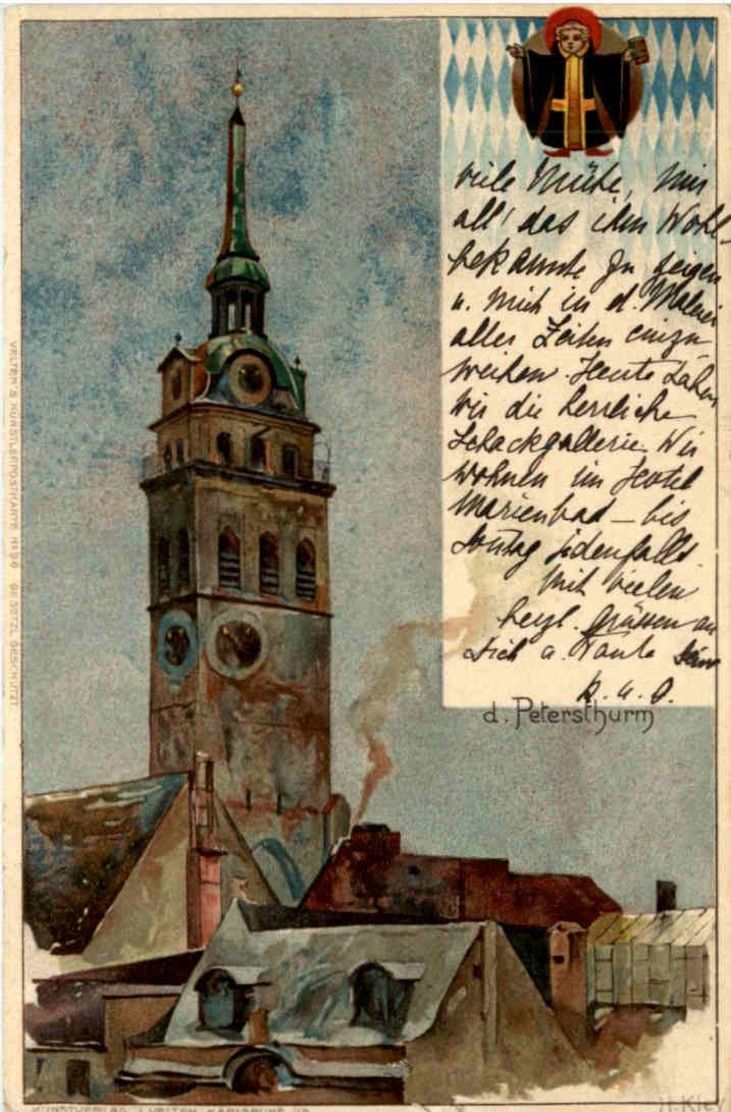 viele Mühe, mir
all' das ihm Wohl-
bekannte zu zeigen
u. mich in d. Malerei
aller Zeiten einzu
weihen. Heute sahen
wir die herrliche
Schackgallerie. Wir
wohnen im Hotel
Marienbad – bis
Sontag jedenfalls.
Mit vielen
herzl. Grüssen an
Dich u. Tante
d. Petersthurm
VELTEN'S KÜNSTLERPOSTKARTE No. GESETZL. GESCHÜTZT
KUNSTVERLAG J. VELTEN, KARLSRUHE
KLEY